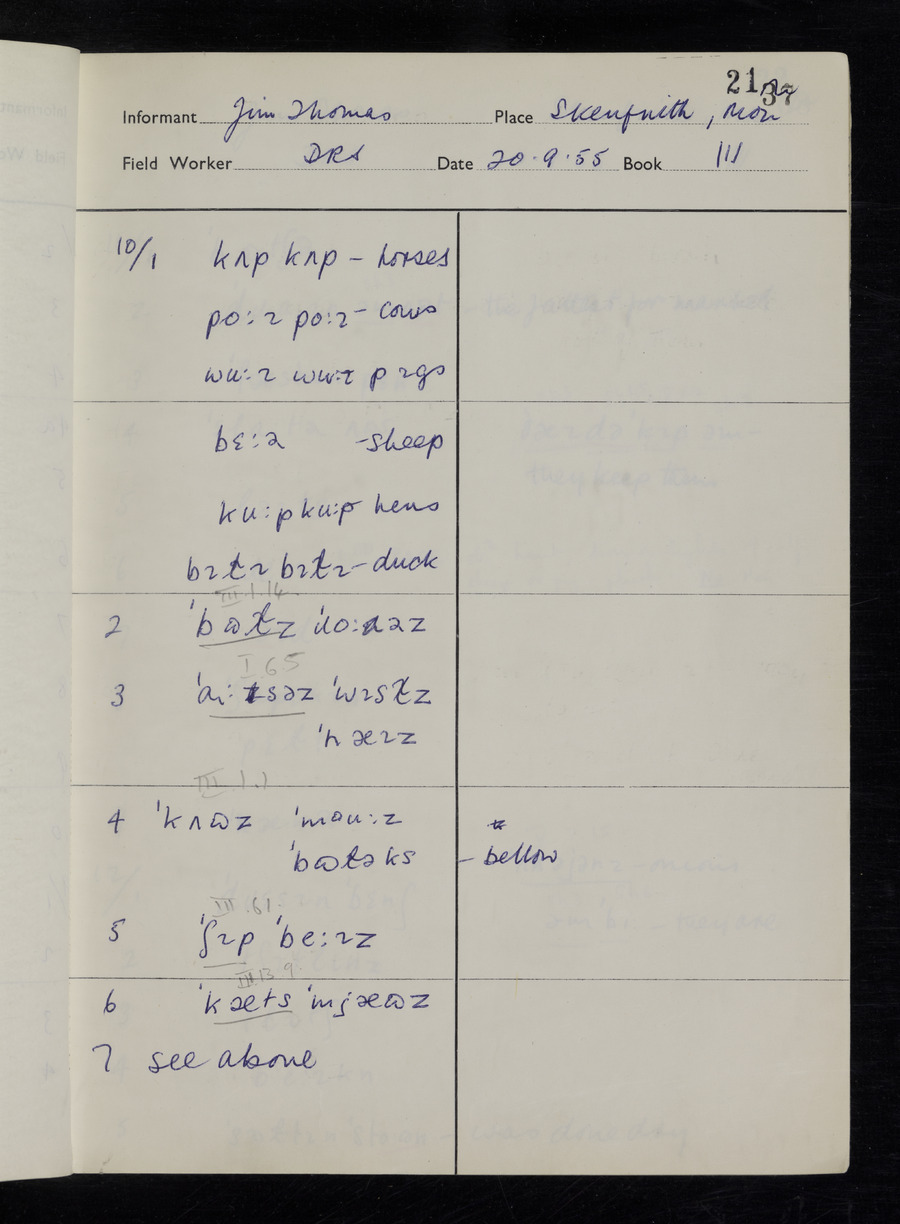 21 37
Informant Jim Thomas Place Skenfrith, Mon
Field Worker DRS Date 20.9.55 Book III
10/1 kʌp kʌp – horses
po:ɪ po:ɪ – cows
wu:ɪ wu:ɪ pɪgs
bɛ:ə – sheep
ku:p ku:p hens
bɪtɪ bɪtɪ – duck
III.1.14.
2 ˈbɷtz ˈlo:əz
I.6.5
3 ˈɑɪ:səz ˈwɪstz
ˈnæɪz
III.1.1
4 ˈkʌɷz ˈmɑu:z
ˈbɷtəks – bellow
III.6.1.
5 ˈʃɪp ˈbe:ɪz
III.13.9.
6 ˈkæts ˈmjæɷz
7 see above